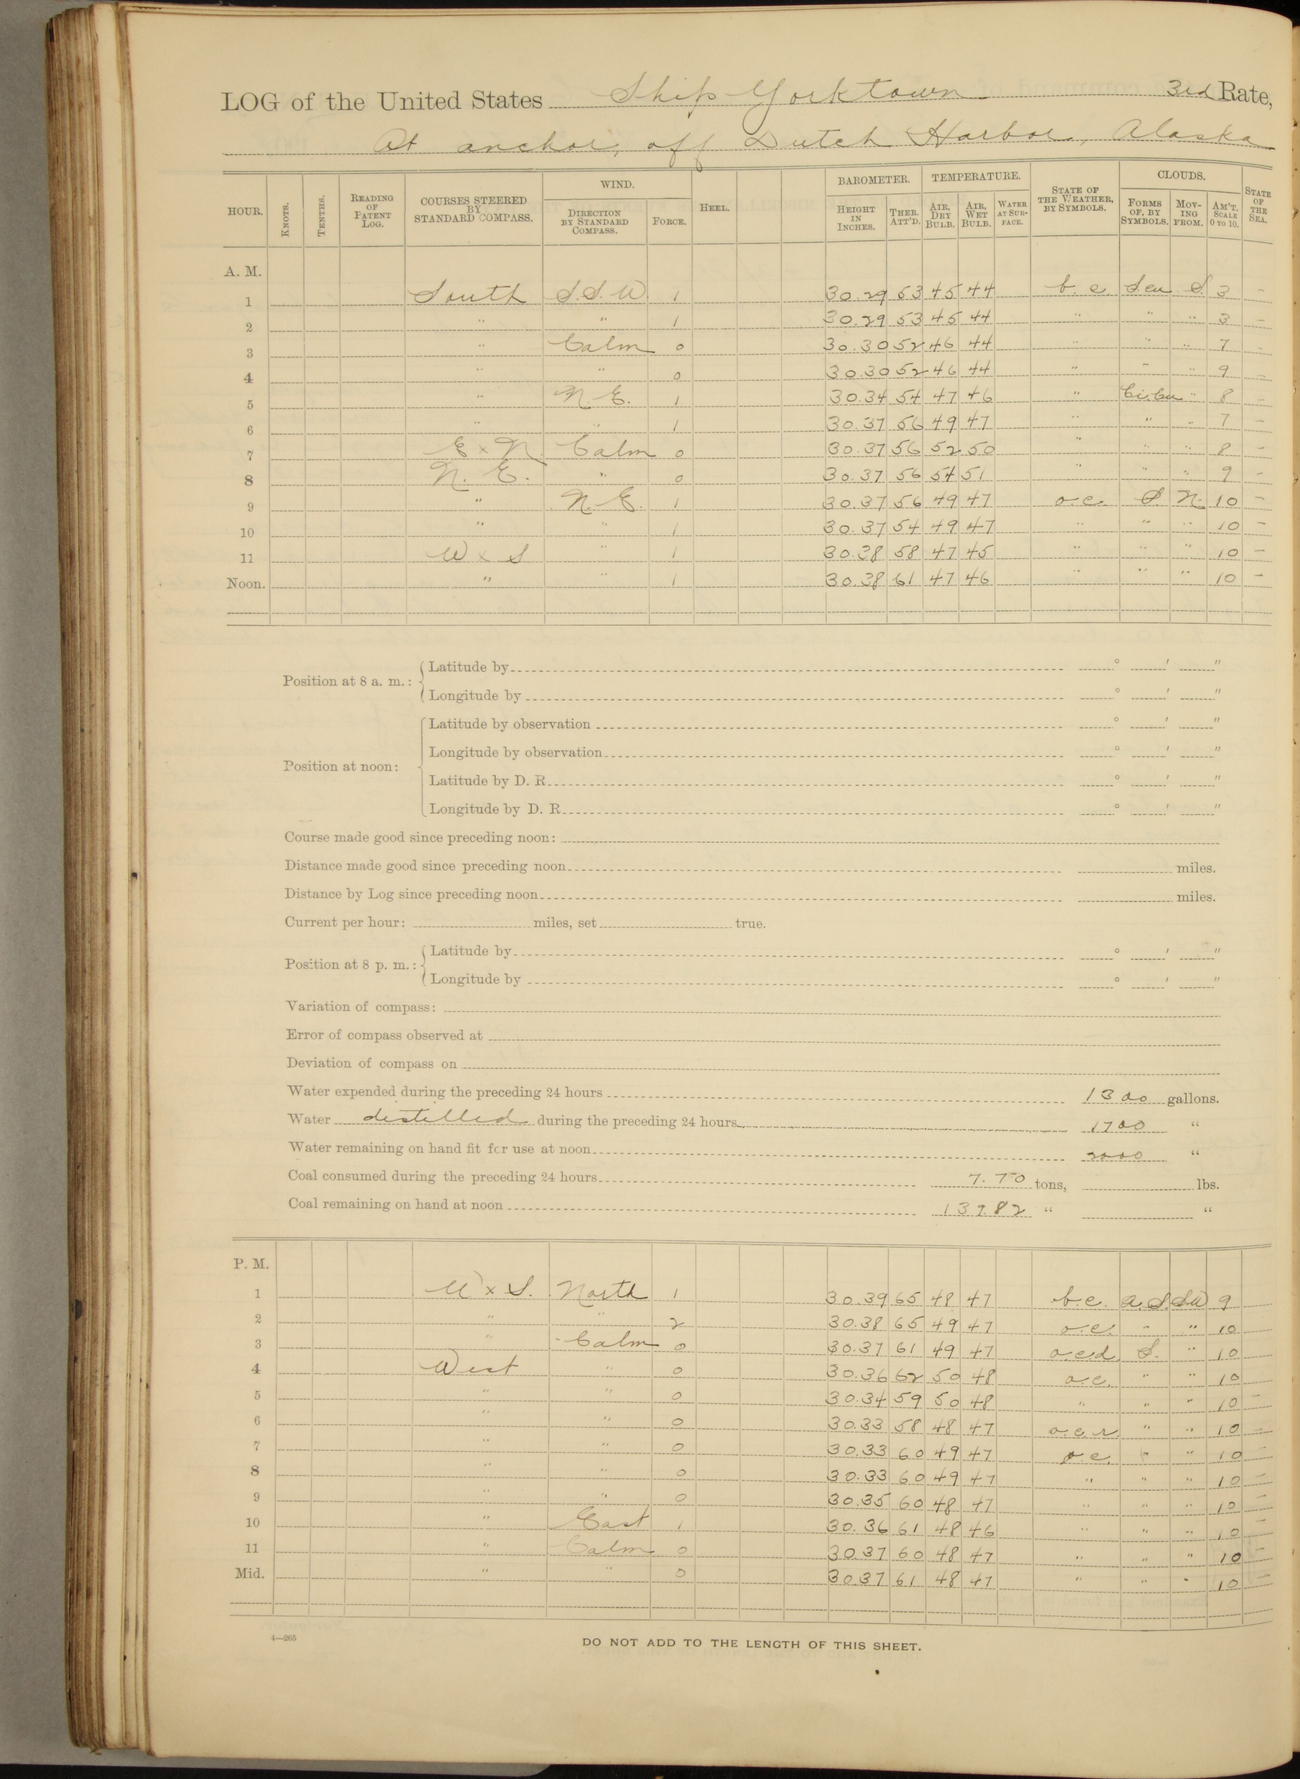 LOG of the United States Ship Yorktown 3rd Rate,
At anchor, off Dutch Harbor, Alaska
HOUR. KNOTS. TENTHS. READING OF PATENT LOG. COURSES STEERED BY STANDARD COMPASS. WIND. DIRECTION BY STANDARD COMPASS. FORCE. HEEL. BAROMETER. HEIGHT IN INCHES. THER. ATT'D. TEMPERATURE. AIR, DRY BULB. AIR, WET BULB. WATER AT SURFACE. STATE OF THE WEATHER, BY SYMBOLS. CLOUDS. FORMS OF, BY SYMBOLS. MOVING FROM. AM'T, SCALE 0 TO 10. STATE OF THE SEA.
A. M.
1 South S.S.W. 1 30.29 53 45 44 b.c. S.cu S. 3 -
2 " " 1 30.29 53 45 44 " " " 3 -
3 " Calm 0 30.30 52 46 44 " " " 7 -
4 " " 0 30.30 52 46 44 " " " 9 -
5 " N.E. 1 30.34 54 47 46 " Ci.Cu " 8 -
6 " " 1 30.37 56 49 47 " " " 7 -
7 E x N Calm 0 30.37 56 52 50 " " " 8 -
8 N. E. " 0 30.37 56 54 51 " " " 9 -
9 " N.E. 1 30.37 56 49 47 o.c. S. N. 10 -
10 " " 1 30.37 54 49 47 " " " 10 -
11 W x S " 1 30.38 58 47 45 " " " 10 -
Noon. " " 1 30.38 61 47 46 " " " 10 -
Position at 8 a. m.: Latitude by ° ' "
Longitude by ° ' "
Position at noon: Latitude by observation ° ' "
Longitude by observation ° ' "
Latitude by D. R. ° ' "
Longitude by D. R. ° ' "
Course made good since preceding noon:
Distance made good since preceding noon miles.
Distance by Log since preceding noon miles.
Current per hour: miles, set true.
Position at 8 p. m.: Latitude by ° ' "
Longitude by ° ' "
Variation of compass:
Error of compass observed at
Deviation of compass on
Water expended during the preceding 24 hours 1300 gallons.
Water distilled during the preceding 24 hours 1700 "
Water remaining on hand fit for use at noon 2000 "
Coal consumed during the preceding 24 hours 7.70 tons, lbs.
Coal remaining on hand at noon 137.82 " "
P. M.
1 W x S. North 1 30.39 65 48 47 b.c. a.S. SW 9
2 " " 2 30.38 65 49 47 o.c. " " 10
3 " Calm 0 30.37 61 49 47 o.c.d. S. " 10
4 West " 0 30.36 62 50 48 o.c. " " 10
5 " " 0 30.34 59 50 48 " " " 10 -
6 " " 0 30.33 58 48 47 o.c.r. " " 10 -
7 " " 0 30.33 60 49 47 o.c. " " 10 -
8 " " 0 30.33 60 49 47 " " " 10 -
9 " " 0 30.35 60 48 47 " " " 10 -
10 " East 1 30.36 61 48 46 " " " 10 -
11 " Calm 0 30.37 60 48 47 " " " 10 -
Mid. " " 0 30.37 61 48 47 " " " 10 -
4—265
DO NOT ADD TO THE LENGTH OF THIS SHEET.